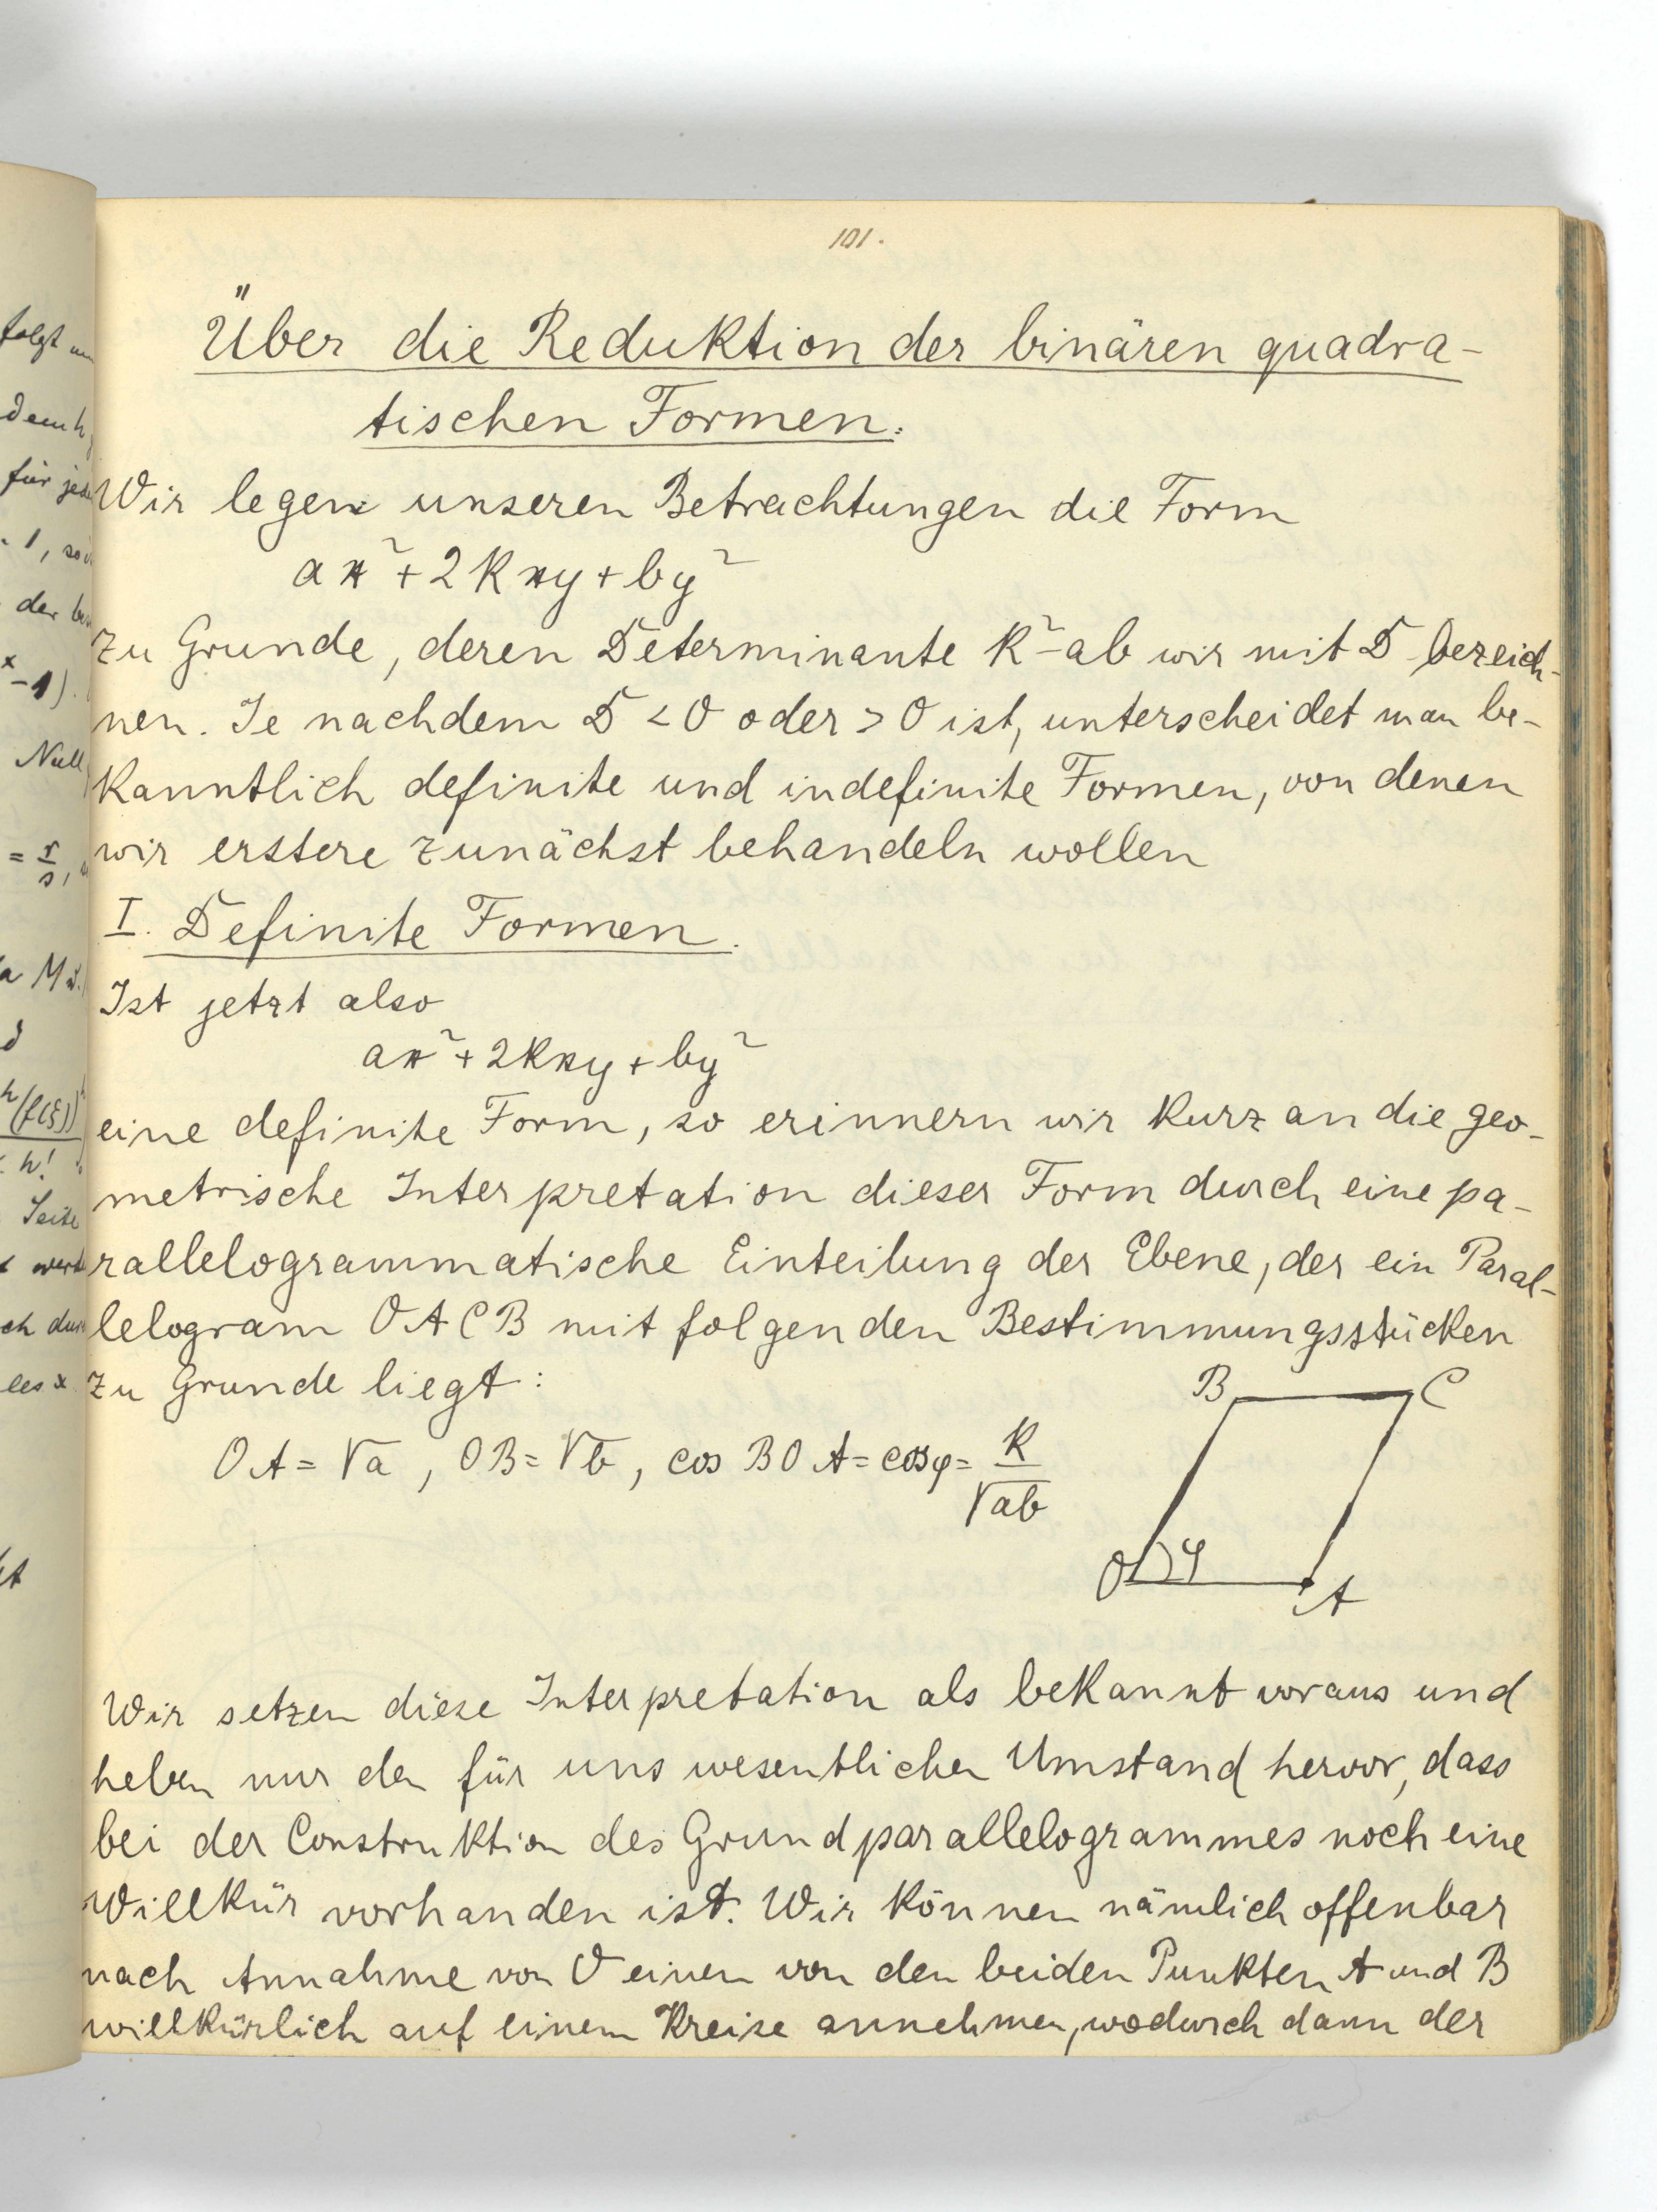 101.
Über die Reduktion der binären quadra-
tischen Formen.
Wir legen unseren Betrachtungen die Form
ax² + 2kxy + by²
zu Grunde, deren Determinante k²-ab wir mit D bezeich-
nen. Je nachdem D < 0 oder > 0 ist, unterscheidet man be-
kanntlich definite und indefinite Formen, von denen
wir erstere zunächst behandeln wollen
I. Definite Formen.
Ist jetzt also
ax² + 2kxy + by²
eine definite Form, so erinnern wir kurz an die geo-
metrische Interpretation dieser Form durch eine pa-
rallelogrammatische Einteilung der Ebene, der ein Paral-
lelogram OACB mit folgenden Bestimmungsstücken
zu Grunde liegt:
OA = √a, OB = √b, cos BOA = cos φ = k/√ab
B C
O φ A
Wir setzen diese Interpretation als bekannt voraus und
heben nur den für uns wesentlichen Umstand hervor, dass
bei der Construktion des Grundparallelogrammes noch eine
Willkür vorhanden ist. Wir können nämlich offenbar
nach Annahme von O einen von den beiden Punkten A und B
willkürlich auf einem Kreise annehmen, wodurch dann der
folgt
für
- 1,
der
Null
= r/s,
h!
Seite